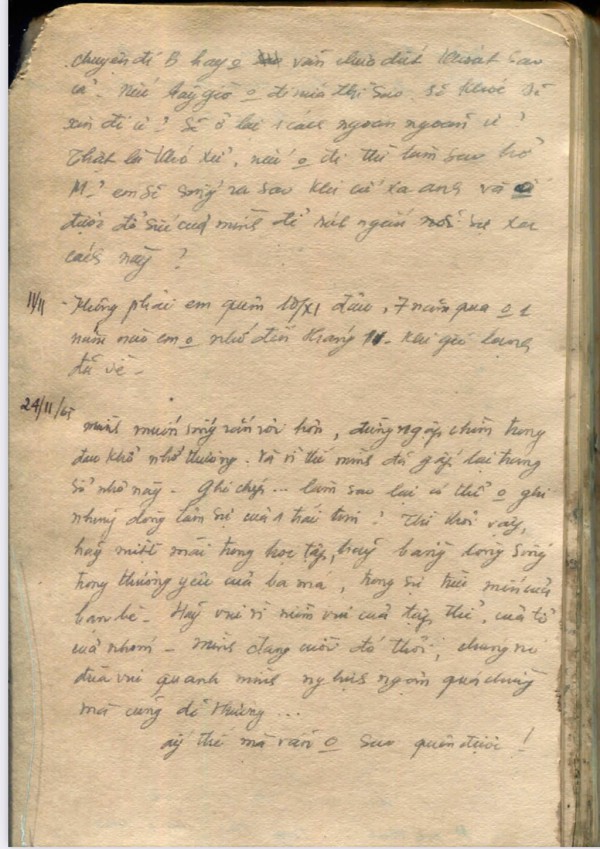 chuyện đi B hay o vẫn chưa dứt khoát sao
cả. Nếu bây giờ o đi nữa thì sao. Sẽ khóc sẽ
xin đi à? Sẽ ở lại 1 cách ngoan ngoãn à?
Thật là khó xử, nếu o đi thì làm sao hở
M.? em sẽ sống ra sao khi cứ xa anh và
được đồ sức của mình để rút ngắn sự xa
cách này?
11/11 - Không phải em quên 10/XI đâu, 7 năm qua o 1
năm nào em o nhớ đến tháng 11. Khi gió lạnh
đã về -
24/11/65
mình muốn sống rắn rỏi hơn, đừng ngập chìm trong
đau khổ nhớ thương. Và vì thế mình đã gấp lại trang
sổ nhỏ này - Ghi chép... làm sao lại có thể o ghi
nhưng dòng tâm sự của 1 trái tim! Thì thôi vậy,
hãy miệt mài trong học tập, hãy bằng lòng sống
trong thương yêu của ba má, trong sự trìu mến của
bạn bè - Hãy vui vì niềm vui của tập thể, của tổ
của nhóm - Mình đang cười đó thôi, chúng nó
đùa vui quanh mình nghịch ngợm quá chừng
mà cũng dễ thương...
ấy thế mà vẫn o sao quên được!